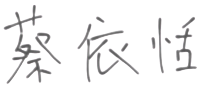 蔡依恬